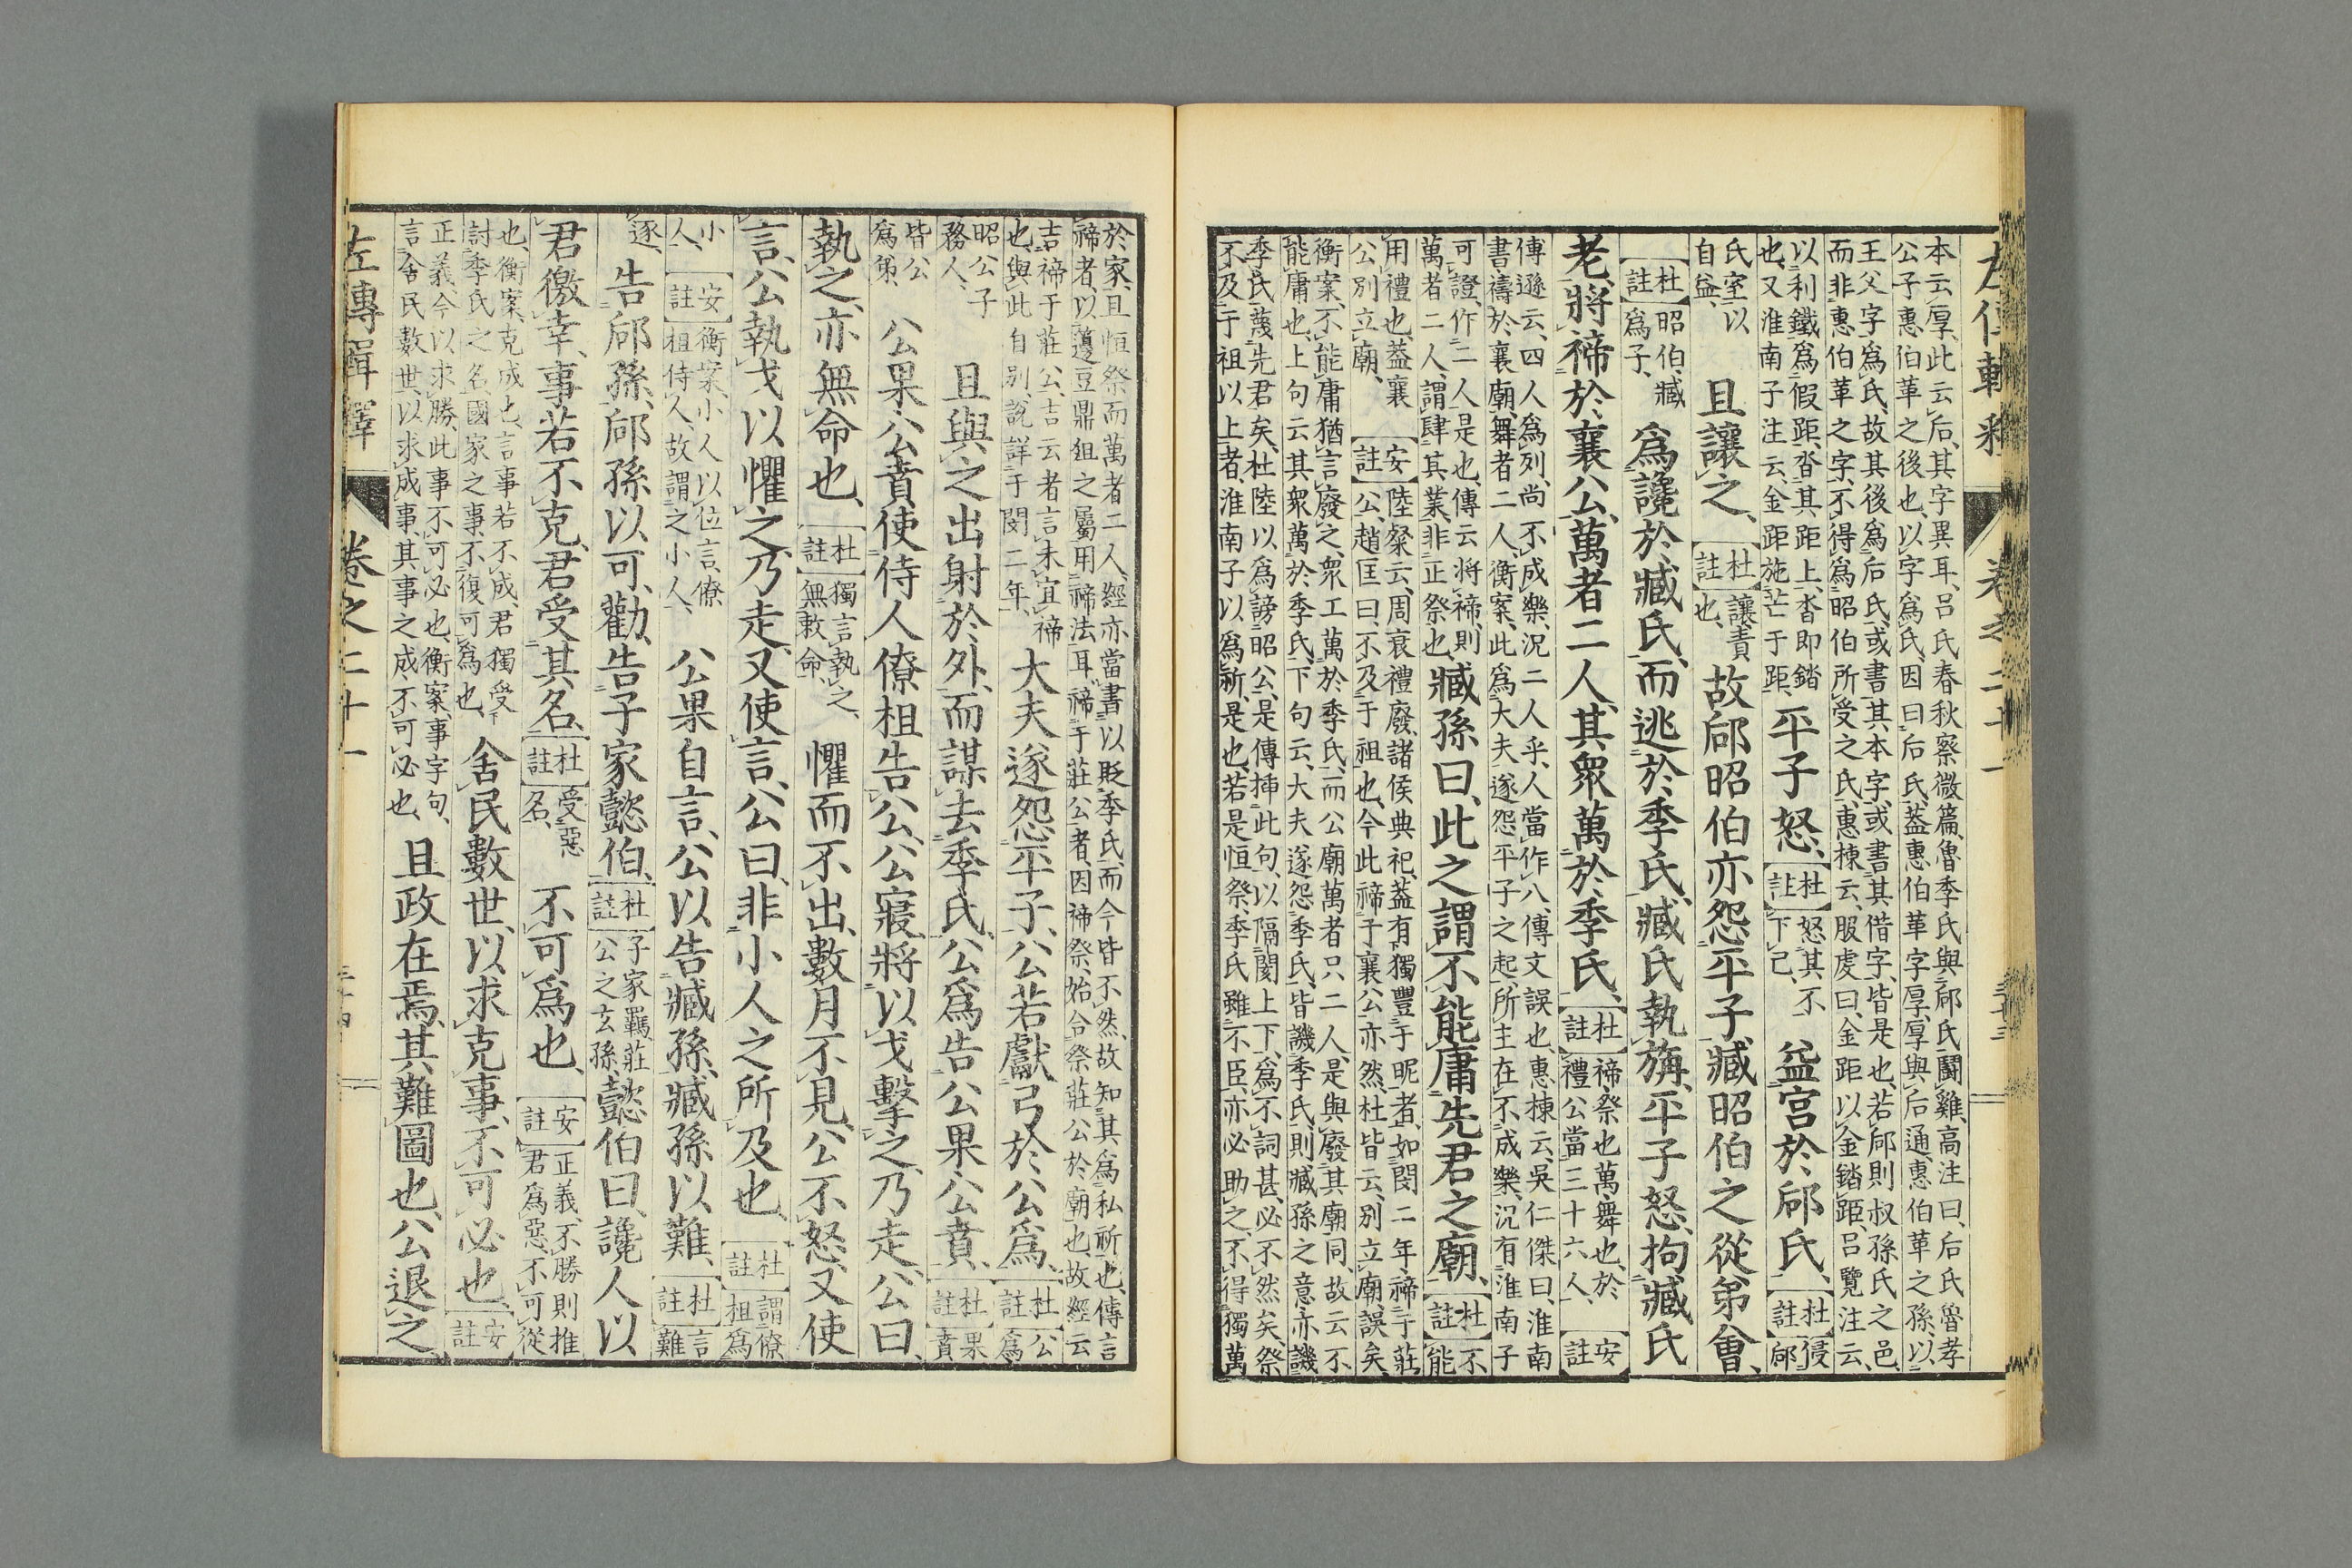 左傳輯釋　卷之二十一　三十三
本云厚、此云后、其字異耳、呂氏春秋察微篇、魯季氏與郈氏鬭雞、高注曰、后氏魯孝
公子惠伯革之後也、以字爲氏、因曰后氏、葢惠伯革字厚、厚與后通、惠伯革之孫、以
王父字爲氏、故其後爲后氏、或書其本字、或書其借字、皆是也、若郈則叔孫氏之邑、
而非惠伯革之字、不得爲昭伯所受之氏、惠棟云、服虔曰、金距以金踏距、呂覽注云、
以利鐵爲假距、沓其距上、沓即踏
也、又淮南子注云、金距施芒于距、
平子怒、【杜註】怒其不下己、益宮於郈氏、【杜註】侵郈
氏室以自益、且讓之、【杜註】讓責也、故郈昭伯亦怨平子、臧昭伯之從弟會、
【杜註】昭伯、臧爲子、爲讒於臧氏、而逃於季氏、臧氏執旃、平子怒、拘臧氏
老、將禘於襄公、萬者二人、其衆萬於季氏、【杜註】禘祭也、萬舞也、於禮公當三十六人、【安註】
傳遜云、四人爲列、尚不成樂、況二人乎、人當作八、傳文誤也、惠棟云、吳仁傑曰、淮南
書禱於襄廟、舞者二人、衡案、此爲大夫遂怨平子之起、所主在不成樂、況有淮南子
可證、作二人是也、傳云將禘、則
萬者二人、謂肆其業、非正祭也、
臧孫曰、此之謂不能庸先君之廟、【杜註】不能
用禮也、葢襄公別立廟、
【安註】陸粲云、周衰禮廢、諸侯典祀、葢有獨豐于昵者、如閔二年、禘于莊
公、趙匡曰、不及于祖也、今此禘于襄公亦然、杜皆云、別立廟、誤矣、
衡案、不能庸、猶言廢之、衆工萬於季氏、而公廟萬者只二人、是與廢其廟同、故云不
能庸也、上句云其衆萬於季氏、下句云、大夫遂怨季氏、皆譏季氏、則臧孫之意亦譏
季氏蔑先君矣、杜陸以爲謗昭公、是傳揷此句、以隔閡上下、爲不詞甚、必不然矣、祭
不及于祖以上者、淮南子以爲祈是也、若是恒祭、季氏雖不臣、亦必助之、不得獨萬
於家、且恒祭而萬者二人、經亦當書以貶季氏、而今皆不然、故知其爲私祈也、傳言
禘者、以籩豆鼎俎之屬用禘法耳、禘于莊公者、因禘祭、始合祭莊公於廟也、故經云
吉禘于莊公、吉云者言未宜禘
也、與此自別、說詳于閔二年、
大夫遂怨平子、公若獻弓於公爲、【杜註】公爲
昭公子務人、且與之出射於外、而謀去季氏、公爲告公果公賁、【杜註】果賁
皆公爲弟、公果公賁使侍人僚柤告公、公寢、將以戈擊之、乃走、公曰、
執之、亦無命也、【杜註】獨言執之、無敕命、懼而不出、數月不見、公不怒、又使
言、公執戈以懼之、乃走、又使言、公曰、非小人之所及也、【杜註】謂僚柤爲
小人、【安註】衡案、小人以位言、僚柤侍人、故謂之小人、公果自言、公以告臧孫、臧孫以難、【杜註】言難
逐、告郈孫、郈孫以可、勸、告子家懿伯、【杜註】子家羈、莊公之玄孫、懿伯曰、讒人以
君徼幸、事若不克、君受其名、【杜註】受惡名、不可爲也、【安註】正義、不勝則推君爲惡、不可從
也、衡案、克成也、言事若不成、君獨受
討季氏之名、國家之事、不復可爲也、
舍民數世、以求克事、不可必也、【安註】
正義、今以求勝、此事不可必也、衡案、事字句、
言舍民數世、以求成事、其事之成、不可必也、
且政在焉、其難圖也、公退之
左傳輯釋　卷之二十一　三十四